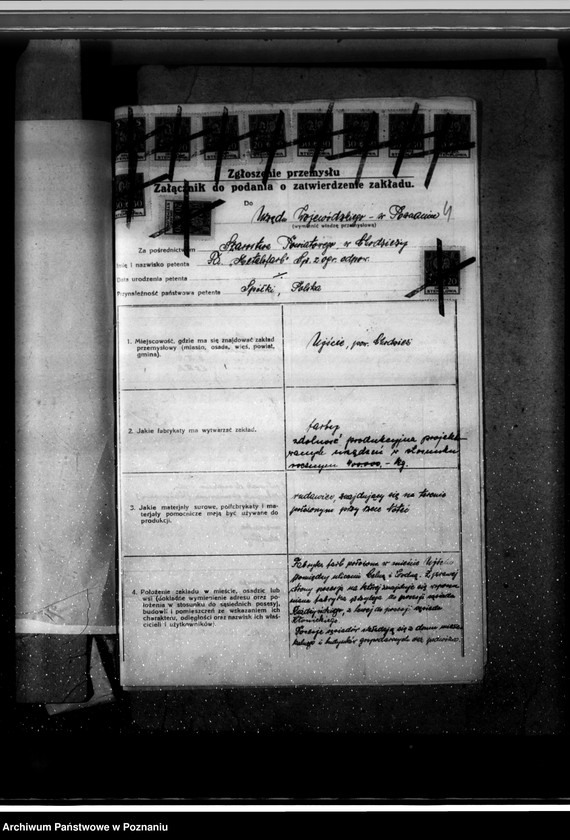 Zgłoszenie przemysłu
Załącznik do podania o zatwierdzenie zakładu.
Do
Urzędu Wojewódzkiego w Poznaniu
(wymienić władzę przemysłową)
Za pośrednictwem Starostwa Powiatowego w Chodzieży
Imię i nazwisko petenta Sp. z ogr. odpor.
Data urodzenia petenta
Przynależność państwowa petenta Spółki, Polska
1. Miejscowość, gdzie ma się znajdować zakład
przemysłowy (miasto, osada, wieś, powiat,
gmina).
Ujście, pow. Chodzież
2. Jakie fabrykaty ma wytwarzać zakład.
farby
zdolność produkcyjna projekto-
wanych urządzeń w stosunku
rocznym 400.000,- kg.
3. Jakie materjały surowe, półfabrykaty i ma-
terjały pomocnicze mają być używane do
produkcji.
rudawiec znajdujący się na terenie
położonym przy rzece Noteć
4. Położenie zakładu w mieście, osadzie lub
wsi (dokładne wymienienie adresu oraz po-
łożenia w stosunku do sąsiednich posesyj,
budowli i pomieszczeń ze wskazaniem ich
charakteru, odległości oraz nazwisk ich właś-
cicieli i użytkowników).
Fabryka farb położona w mieście Ujście
pomiędzy ulicami i
strony posesja na której znajduje się
fabryka do posesji sąsiada
a lewej do posesji sąsiada
Posesje sąsiadów składają się z domu miesz-
kalnego i budynków gospodarczych oraz podwórza.
Archiwum Państwowe w Poznaniu